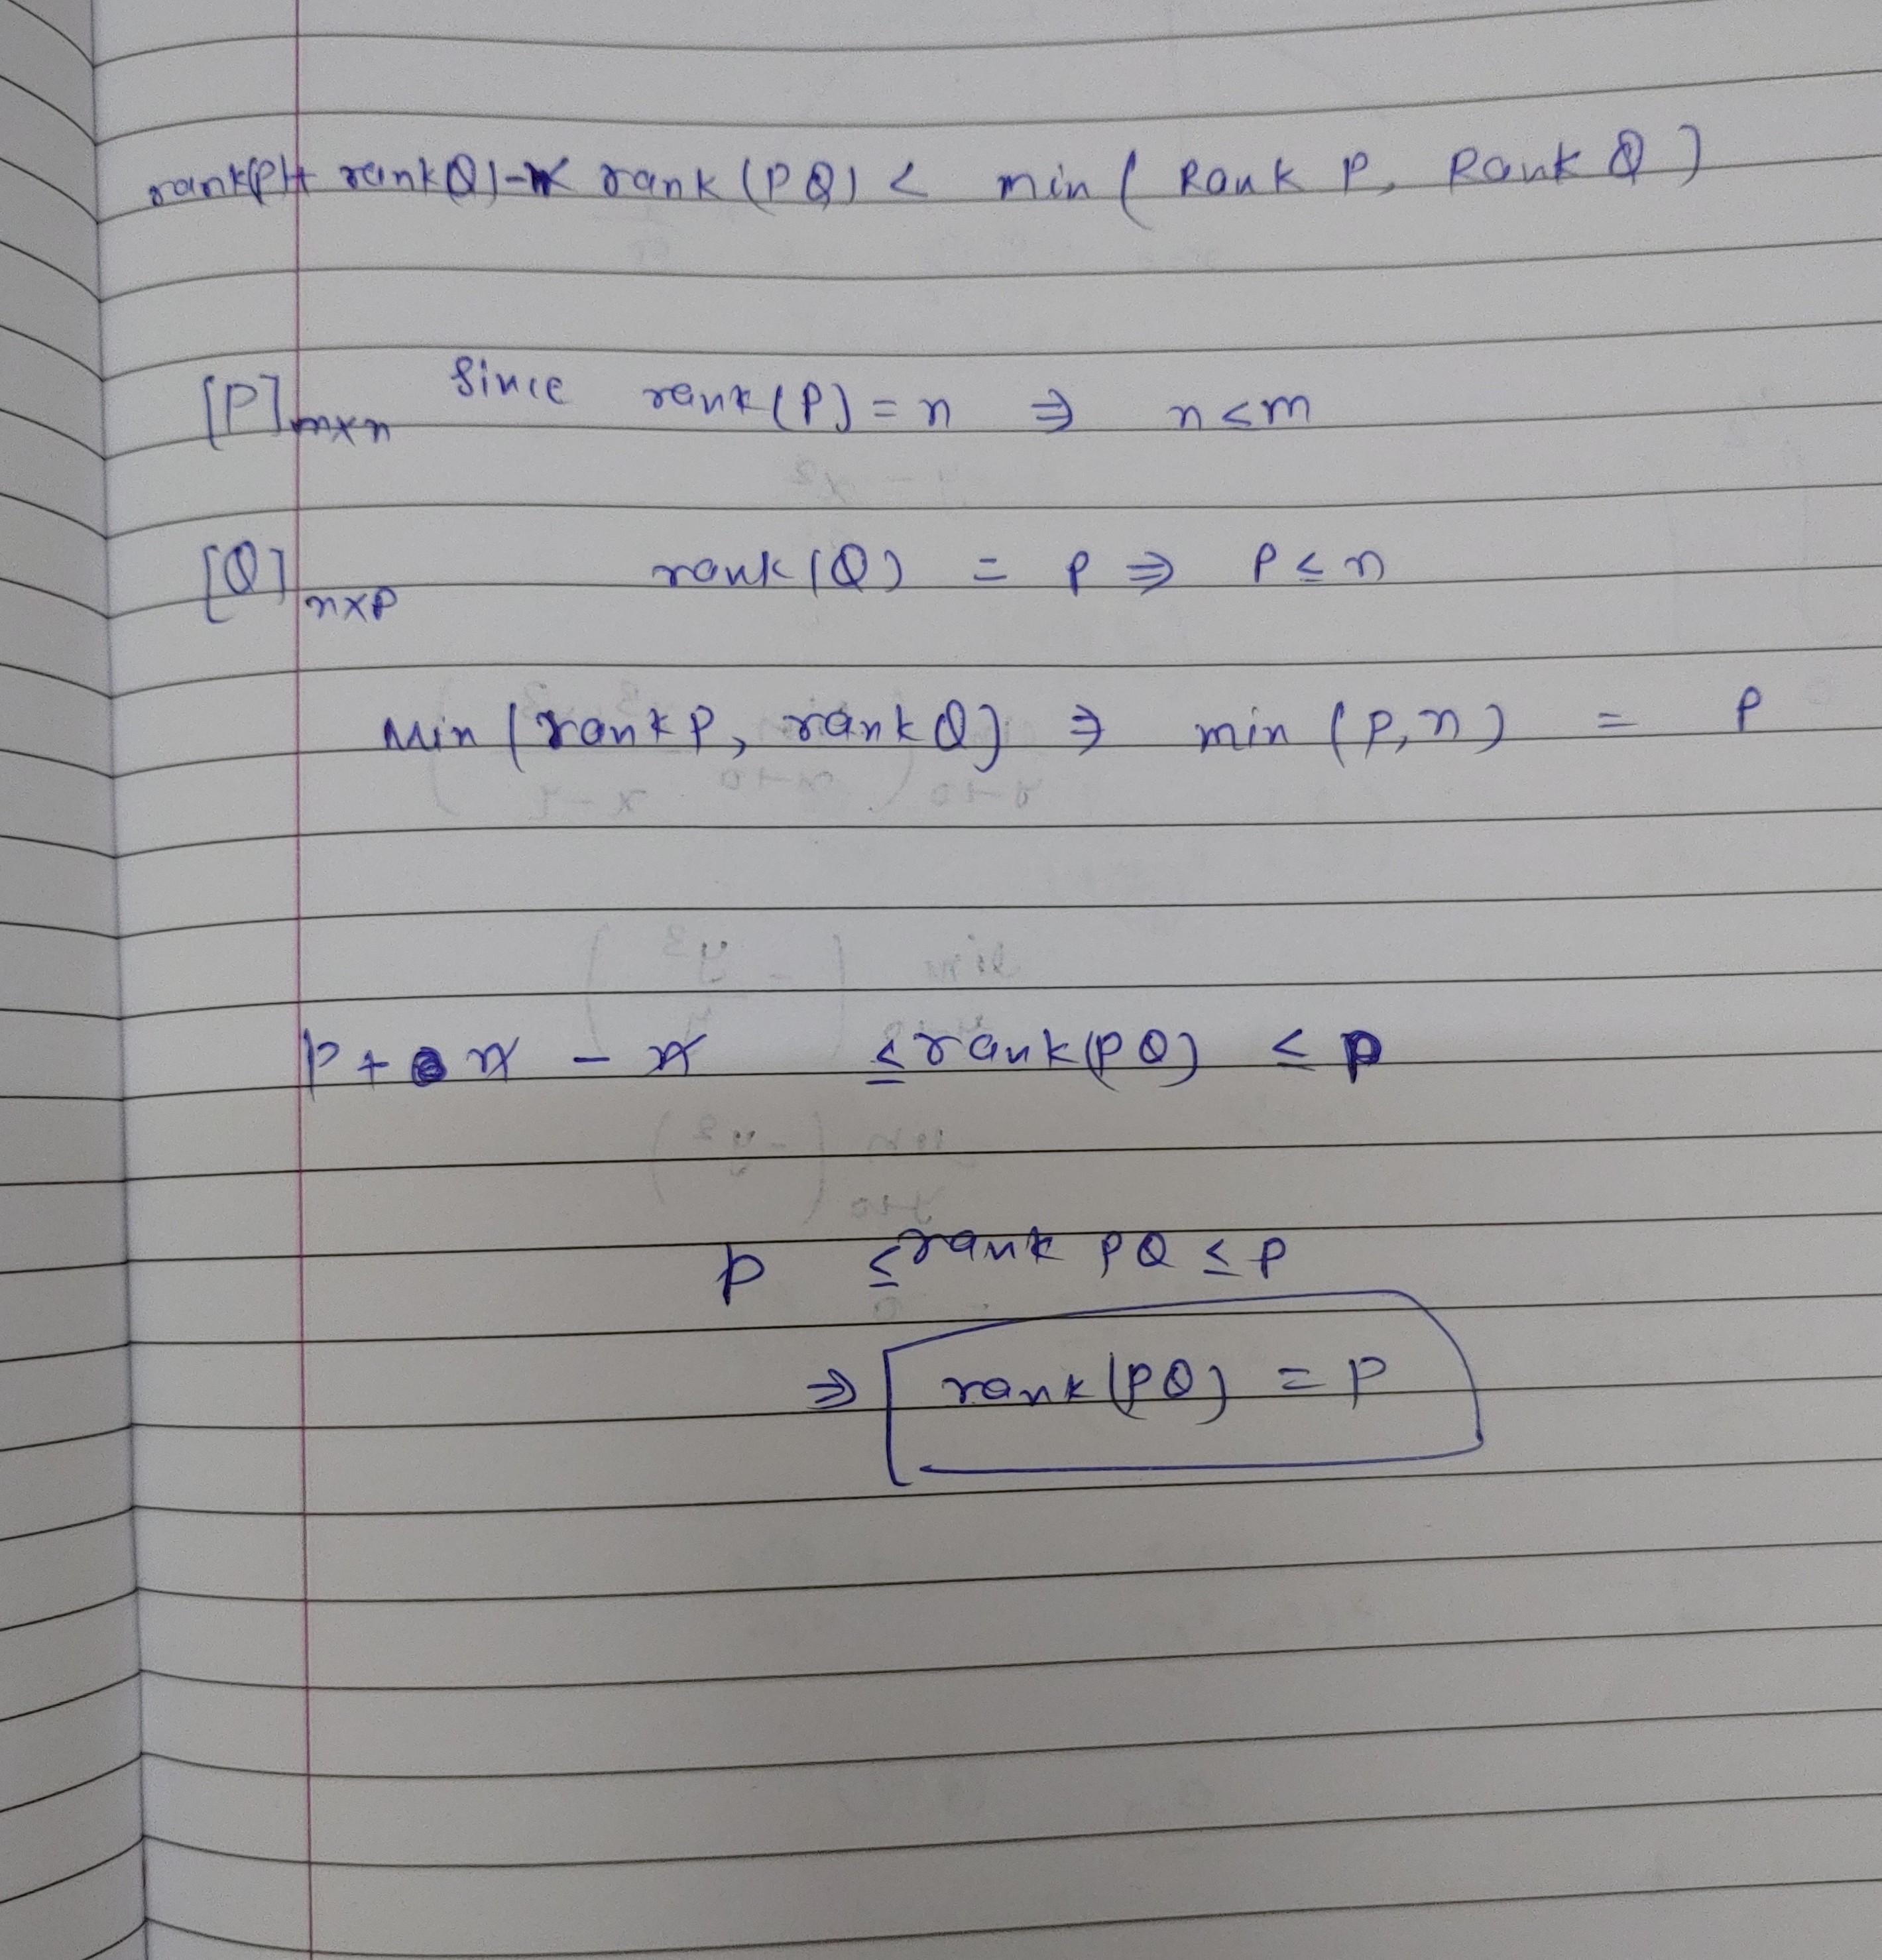 rank(P)+ rank Q)- rank (PQ) < min ( Rank P, Rank Q )
[P]m×n Since rank(P) = n ⇒ n ≤ m
[Q]n×p rank(Q) = p ⇒ p ≤ n
Min (rank P, rank Q) ⇒ min (p, n) = p
p + n - n ≤ rank(PQ) ≤ p
p ≤ rank PQ ≤ p
⇒ rank(PQ) = p